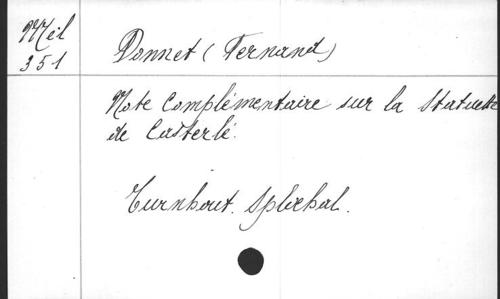 Mél
351
Donnet (Fernand)
Note Complémentaire sur la Statuette
de Casterlé.
Turnhout. Splichal.